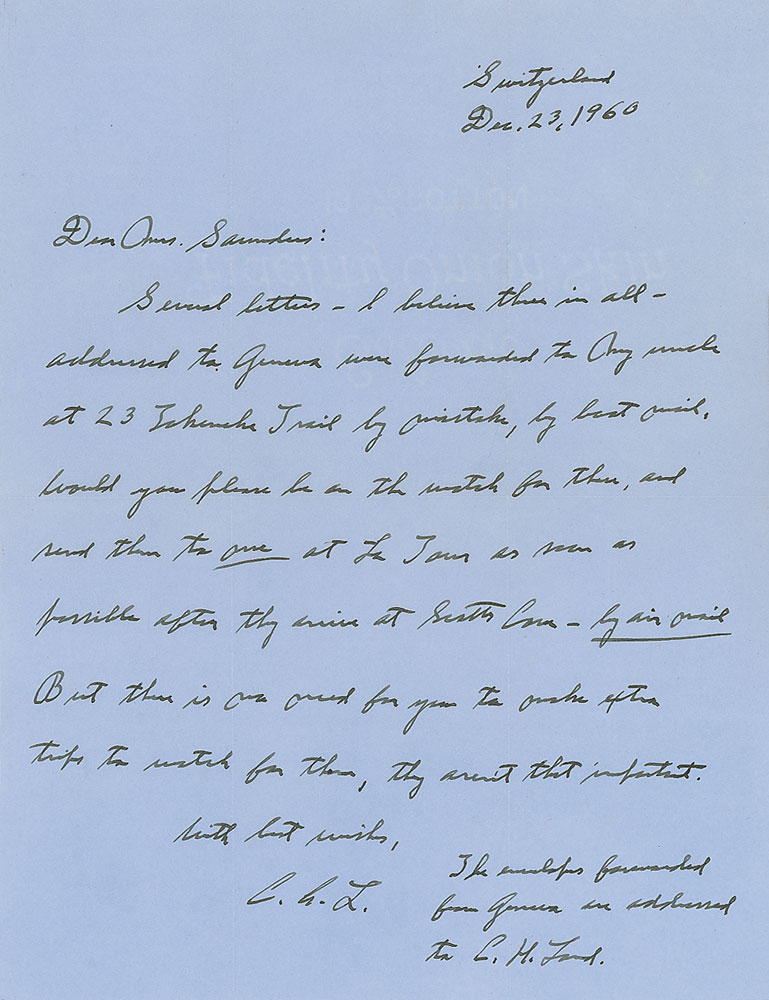 Switzerland
Dec. 23, 1960
Dear Mrs. Saunders:
Several letters – I believe three in all –
addressed to Geneva were forwarded to my uncle
at 23 Tokeneke Trail by mistake, by boat mail.
Would you please be on the watch for them, and
send them to me at La Tour as soon as
possible after they arrive at Scotts Cove – by air mail
But there is no need for you to make extra
trips to watch for them, they aren't that important.
With best wishes,
C. A. L.
The envelopes forwarded
from Geneva are addressed
to C. H. Land.